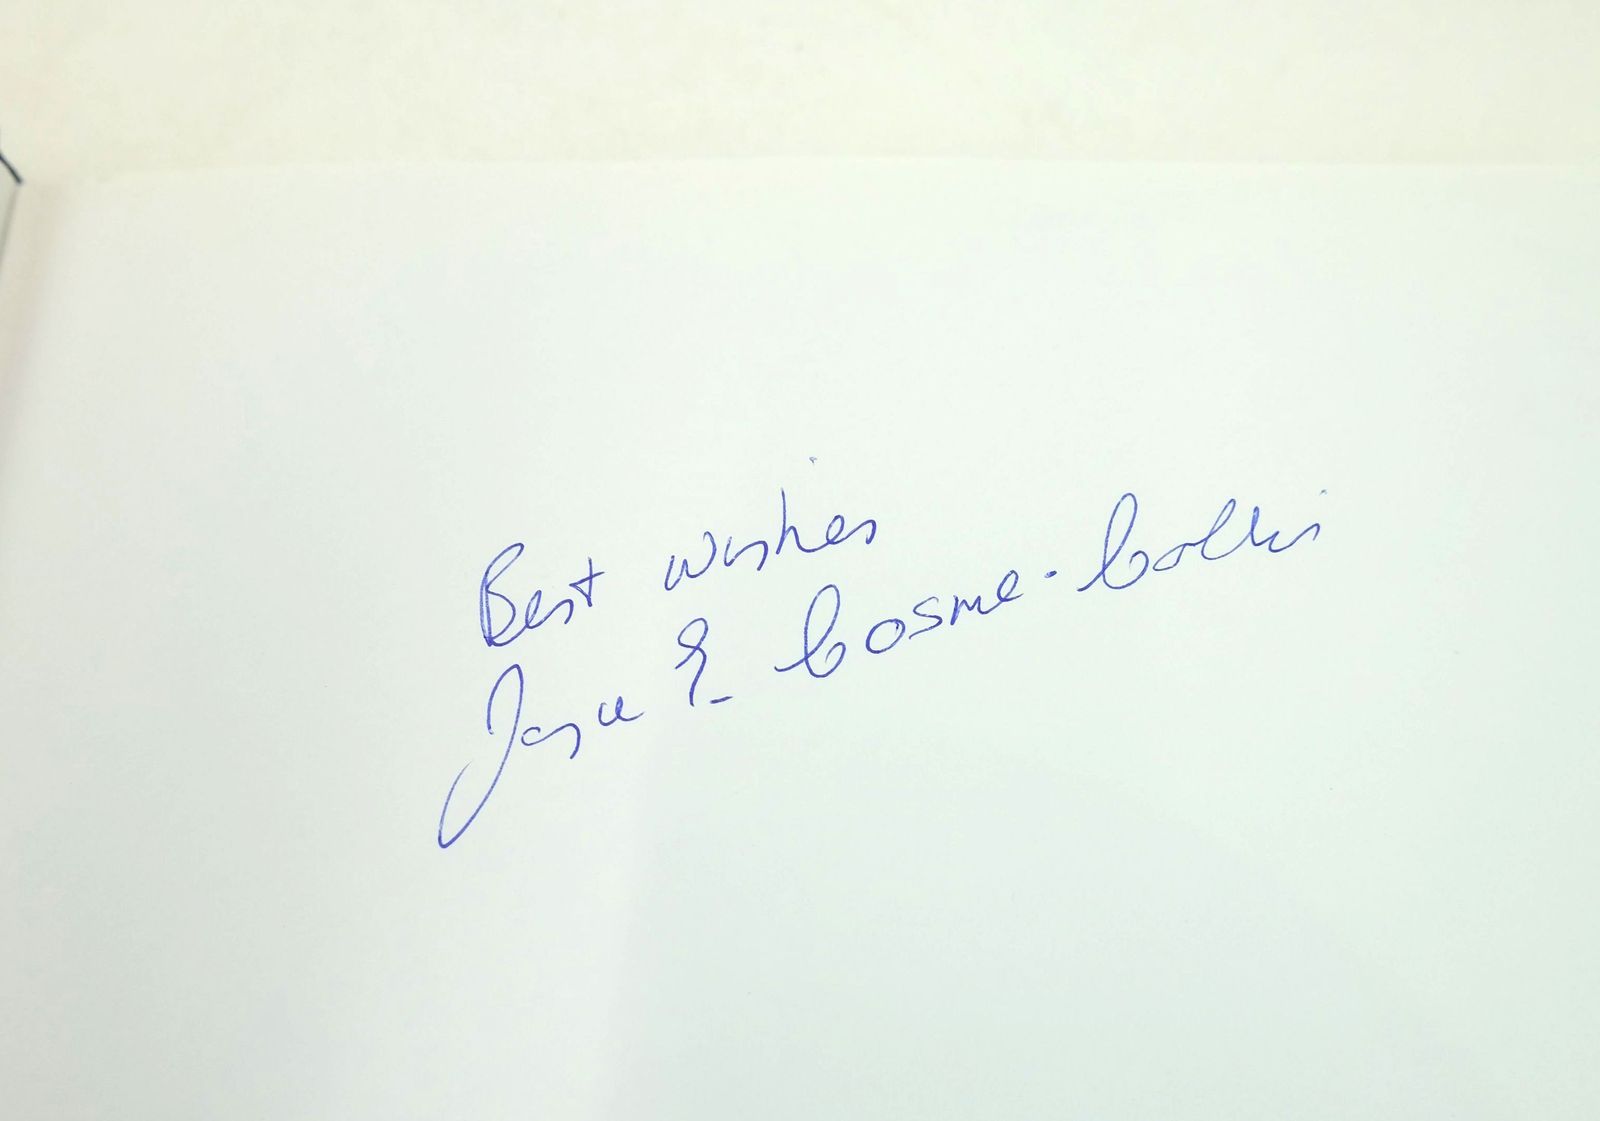 Best wishes
Joyce E. Cosme-Collins